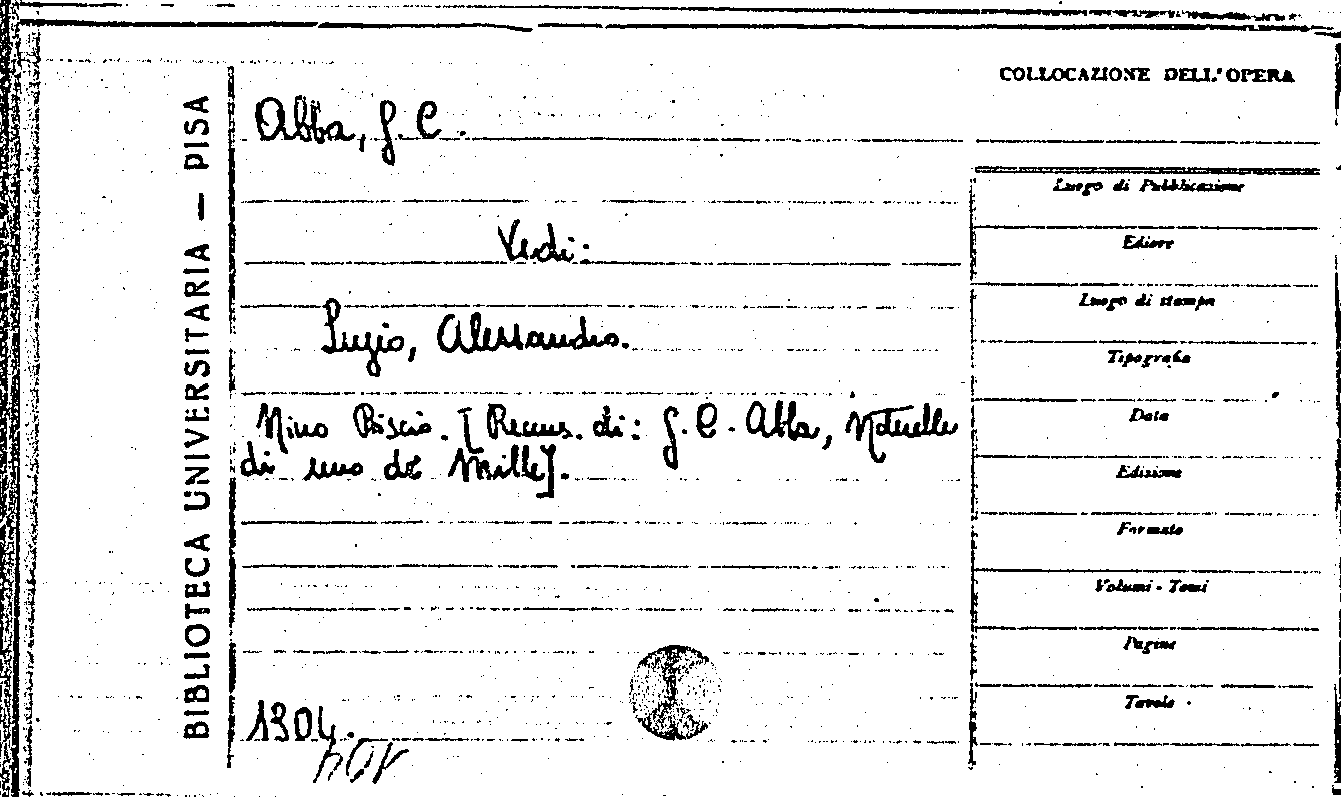 COLLOCAZIONE DELL'OPERA
BIBLIOTECA UNIVERSITARIA — PISA
Abba, G. C.
Vedi:
Luzio, Alessandro.
Nino Bixio. [Recens. di: G. C. Abba, Noterelle
di uno dei Mille].
1304.
Luogo di Pubblicazione
Editore
Luogo di stampa
Tipografia
Data
Edizione
Formato
Volumi - Tomi
Pagine
Tavole